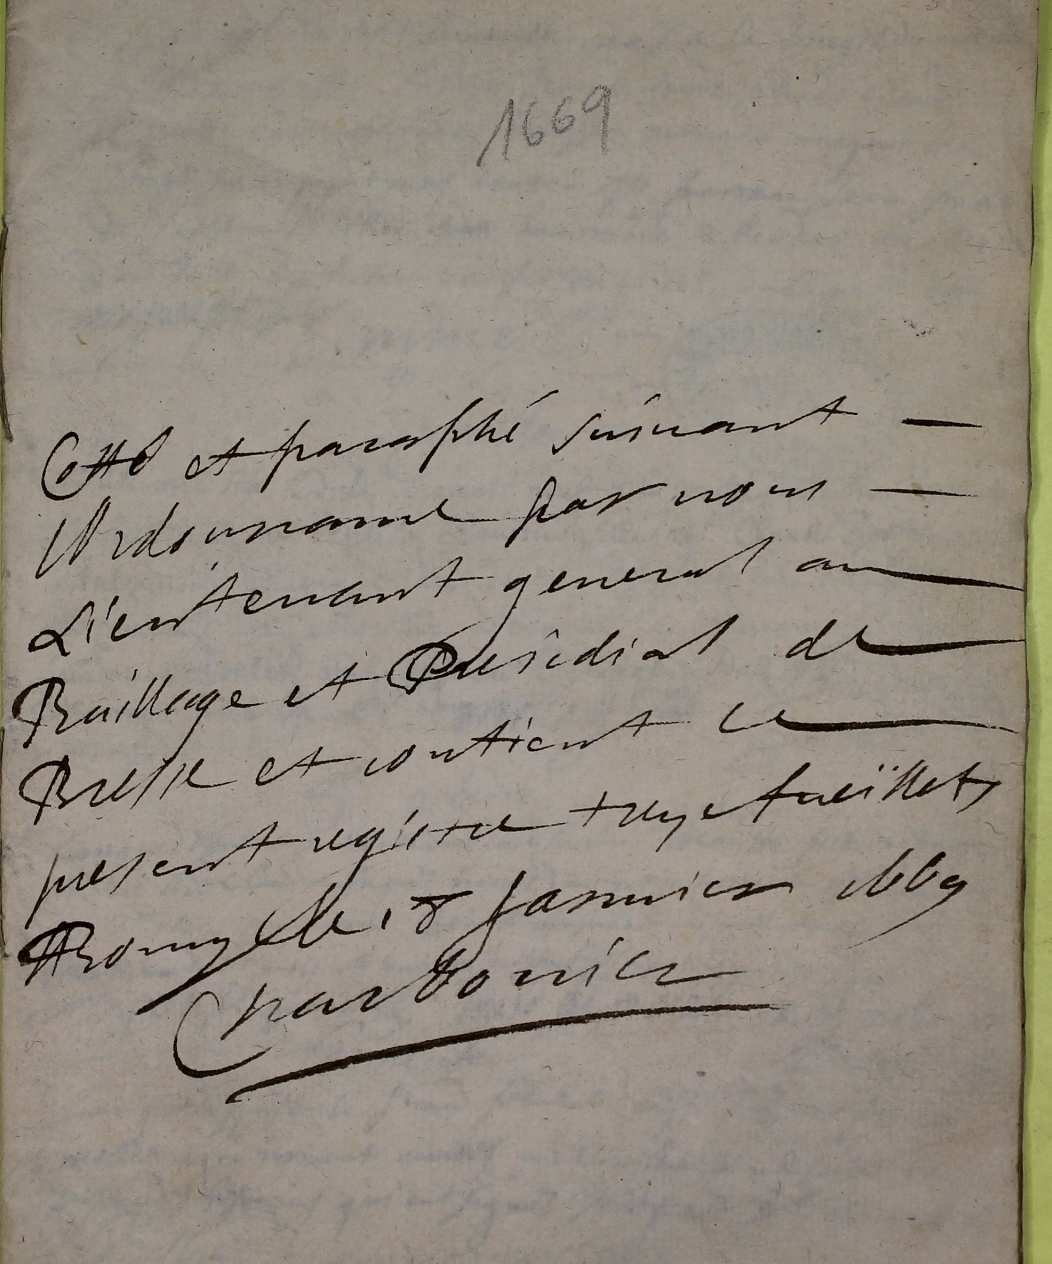 1669
Cotté et paraphé suivant —
l'Ordonnance par nous —
Lieutenant general au
Bailliage et Presidial de
Bresse et contient le
present registre treze fueillets
Bourg le 18 Janvier 1669
Charbonier